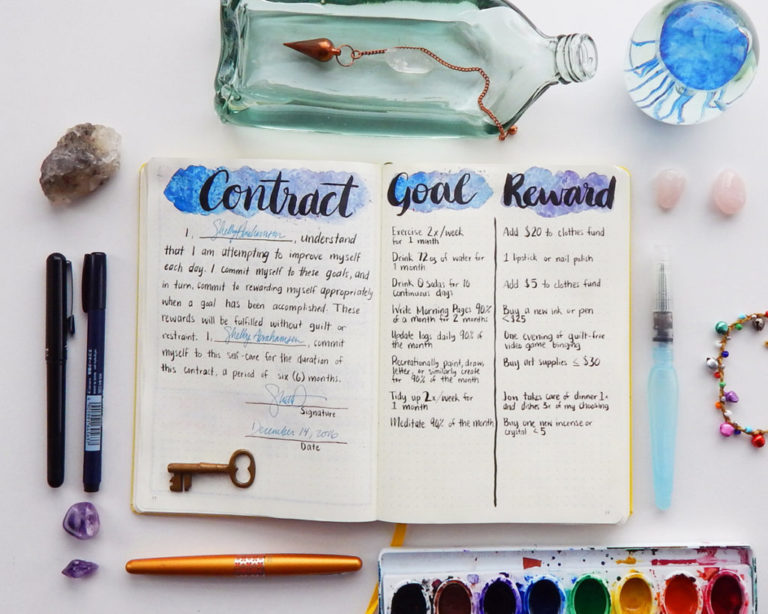 Contract
I, Shelby Abrahamsen, understand
that I am attempting to improve myself
each day. I commit myself to these goals, and
in turn, commit to rewarding myself appropriately
when a goal has been accomplished. These
rewards will be fulfilled without guilt or
restraint. I, Shelby Abrahamsen, commit
myself to this self-care for the duration of
this contract, a period of six (6) months.
Signature
December 14, 2016
Date
Goal
Reward
Exercise 2x/week
for 1 month
Add $20 to clothes fund
Drink 72 oz of water for
1 month
1 lipstick or nail polish
Drink 0 sodas for 10
continuous days
Add $5 to clothes fund
Write Morning Pages 90%
of a month for 2 months
Buy a new ink or pen
≤$25
Update logs daily 90% of
the month
One evening of guilt-free
video game binging
Recreationally paint, draw,
letter, or similarly create
for 90% of the month
Buy art supplies ≤ $30
Tidy up 2x/week for
1 month
Jon takes care of dinner 1x
and dishes 3x of my choosing
Meditate 90% of the month
Buy one new incense or
crystal ≤5